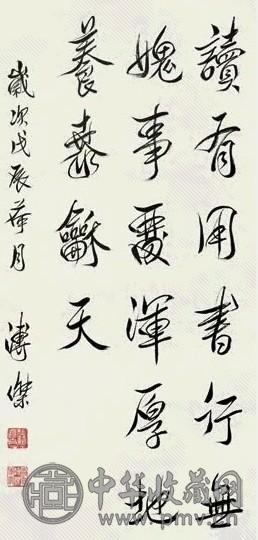 讀有用書行無
媿事渾厚地
養泰龢天
歲次戊辰華月
溥傑
中华收藏网
www.pmv.cn